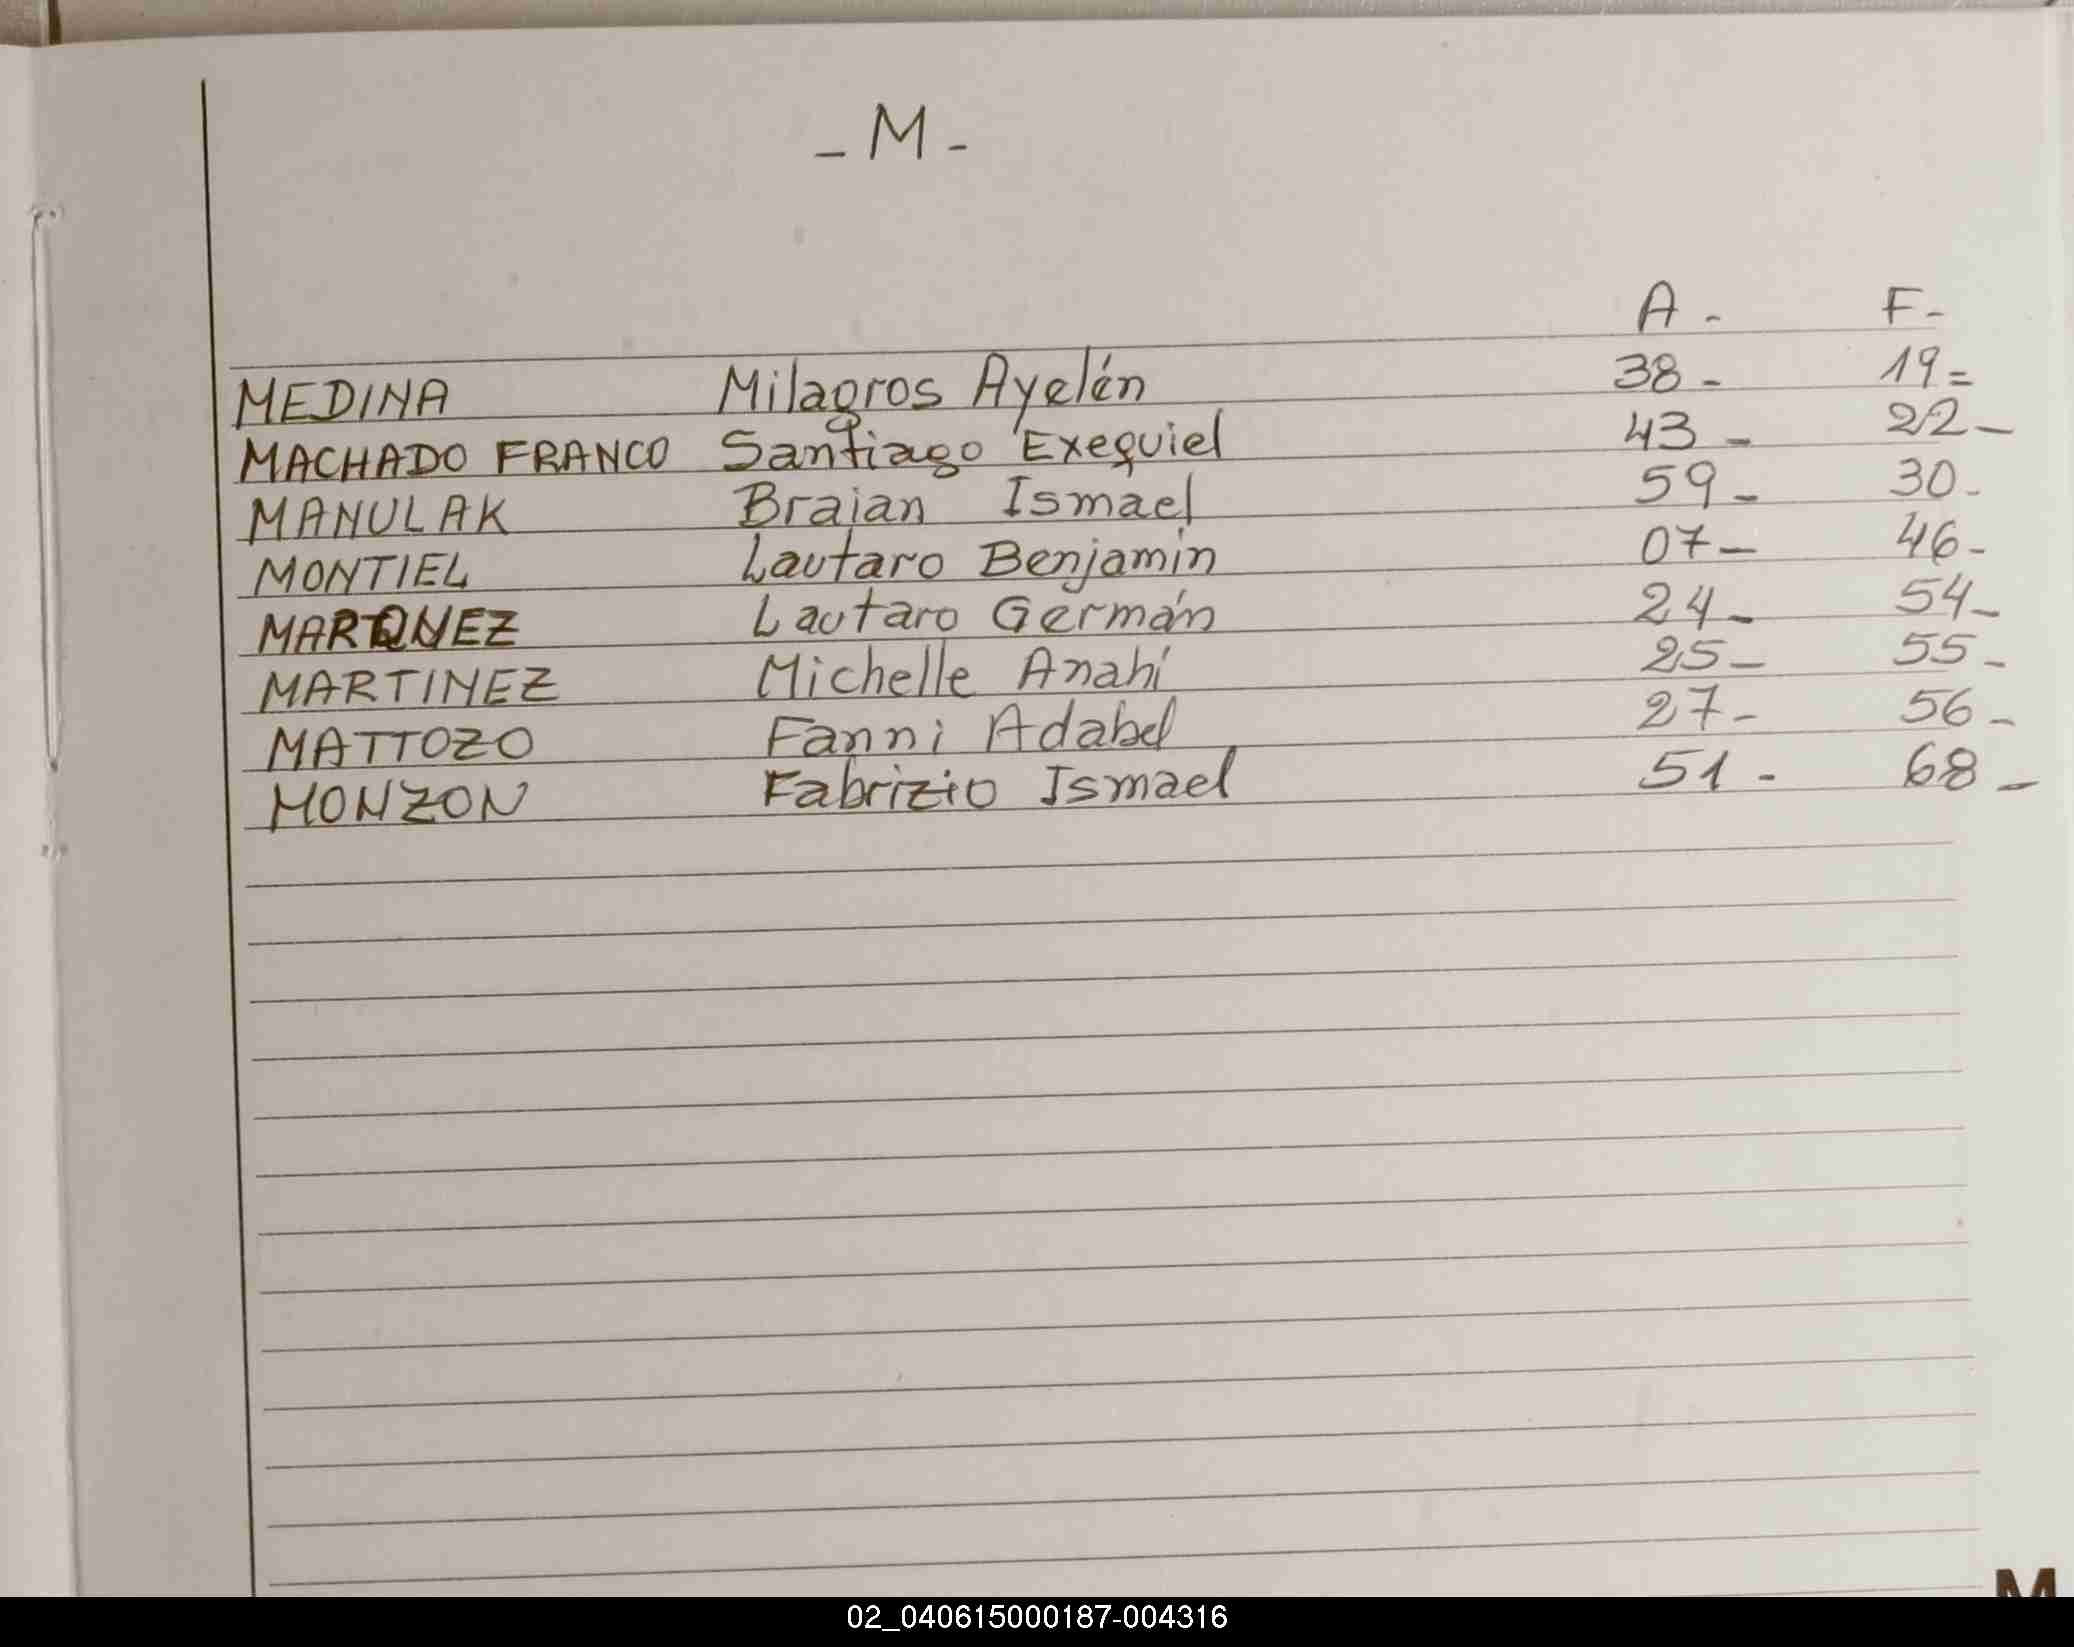 - M -
A - F -
MEDINA Milagros Ayelén 38 - 19 =
MACHADO FRANCO Santiago Exequiel 43 - 22 -
MANULAK Braian Ismael 59 - 30 -
MONTIEL Lautaro Benjamin 07 - 46 -
MARQUEZ Lautaro Germán 24 - 54 -
MARTINEZ Michelle Anahí 25 - 55 -
MATTOZO Fanni Adabel 27 - 56 -
MONZON Fabrizio Ismael 51 - 68 -
M
02_040615000187-004316